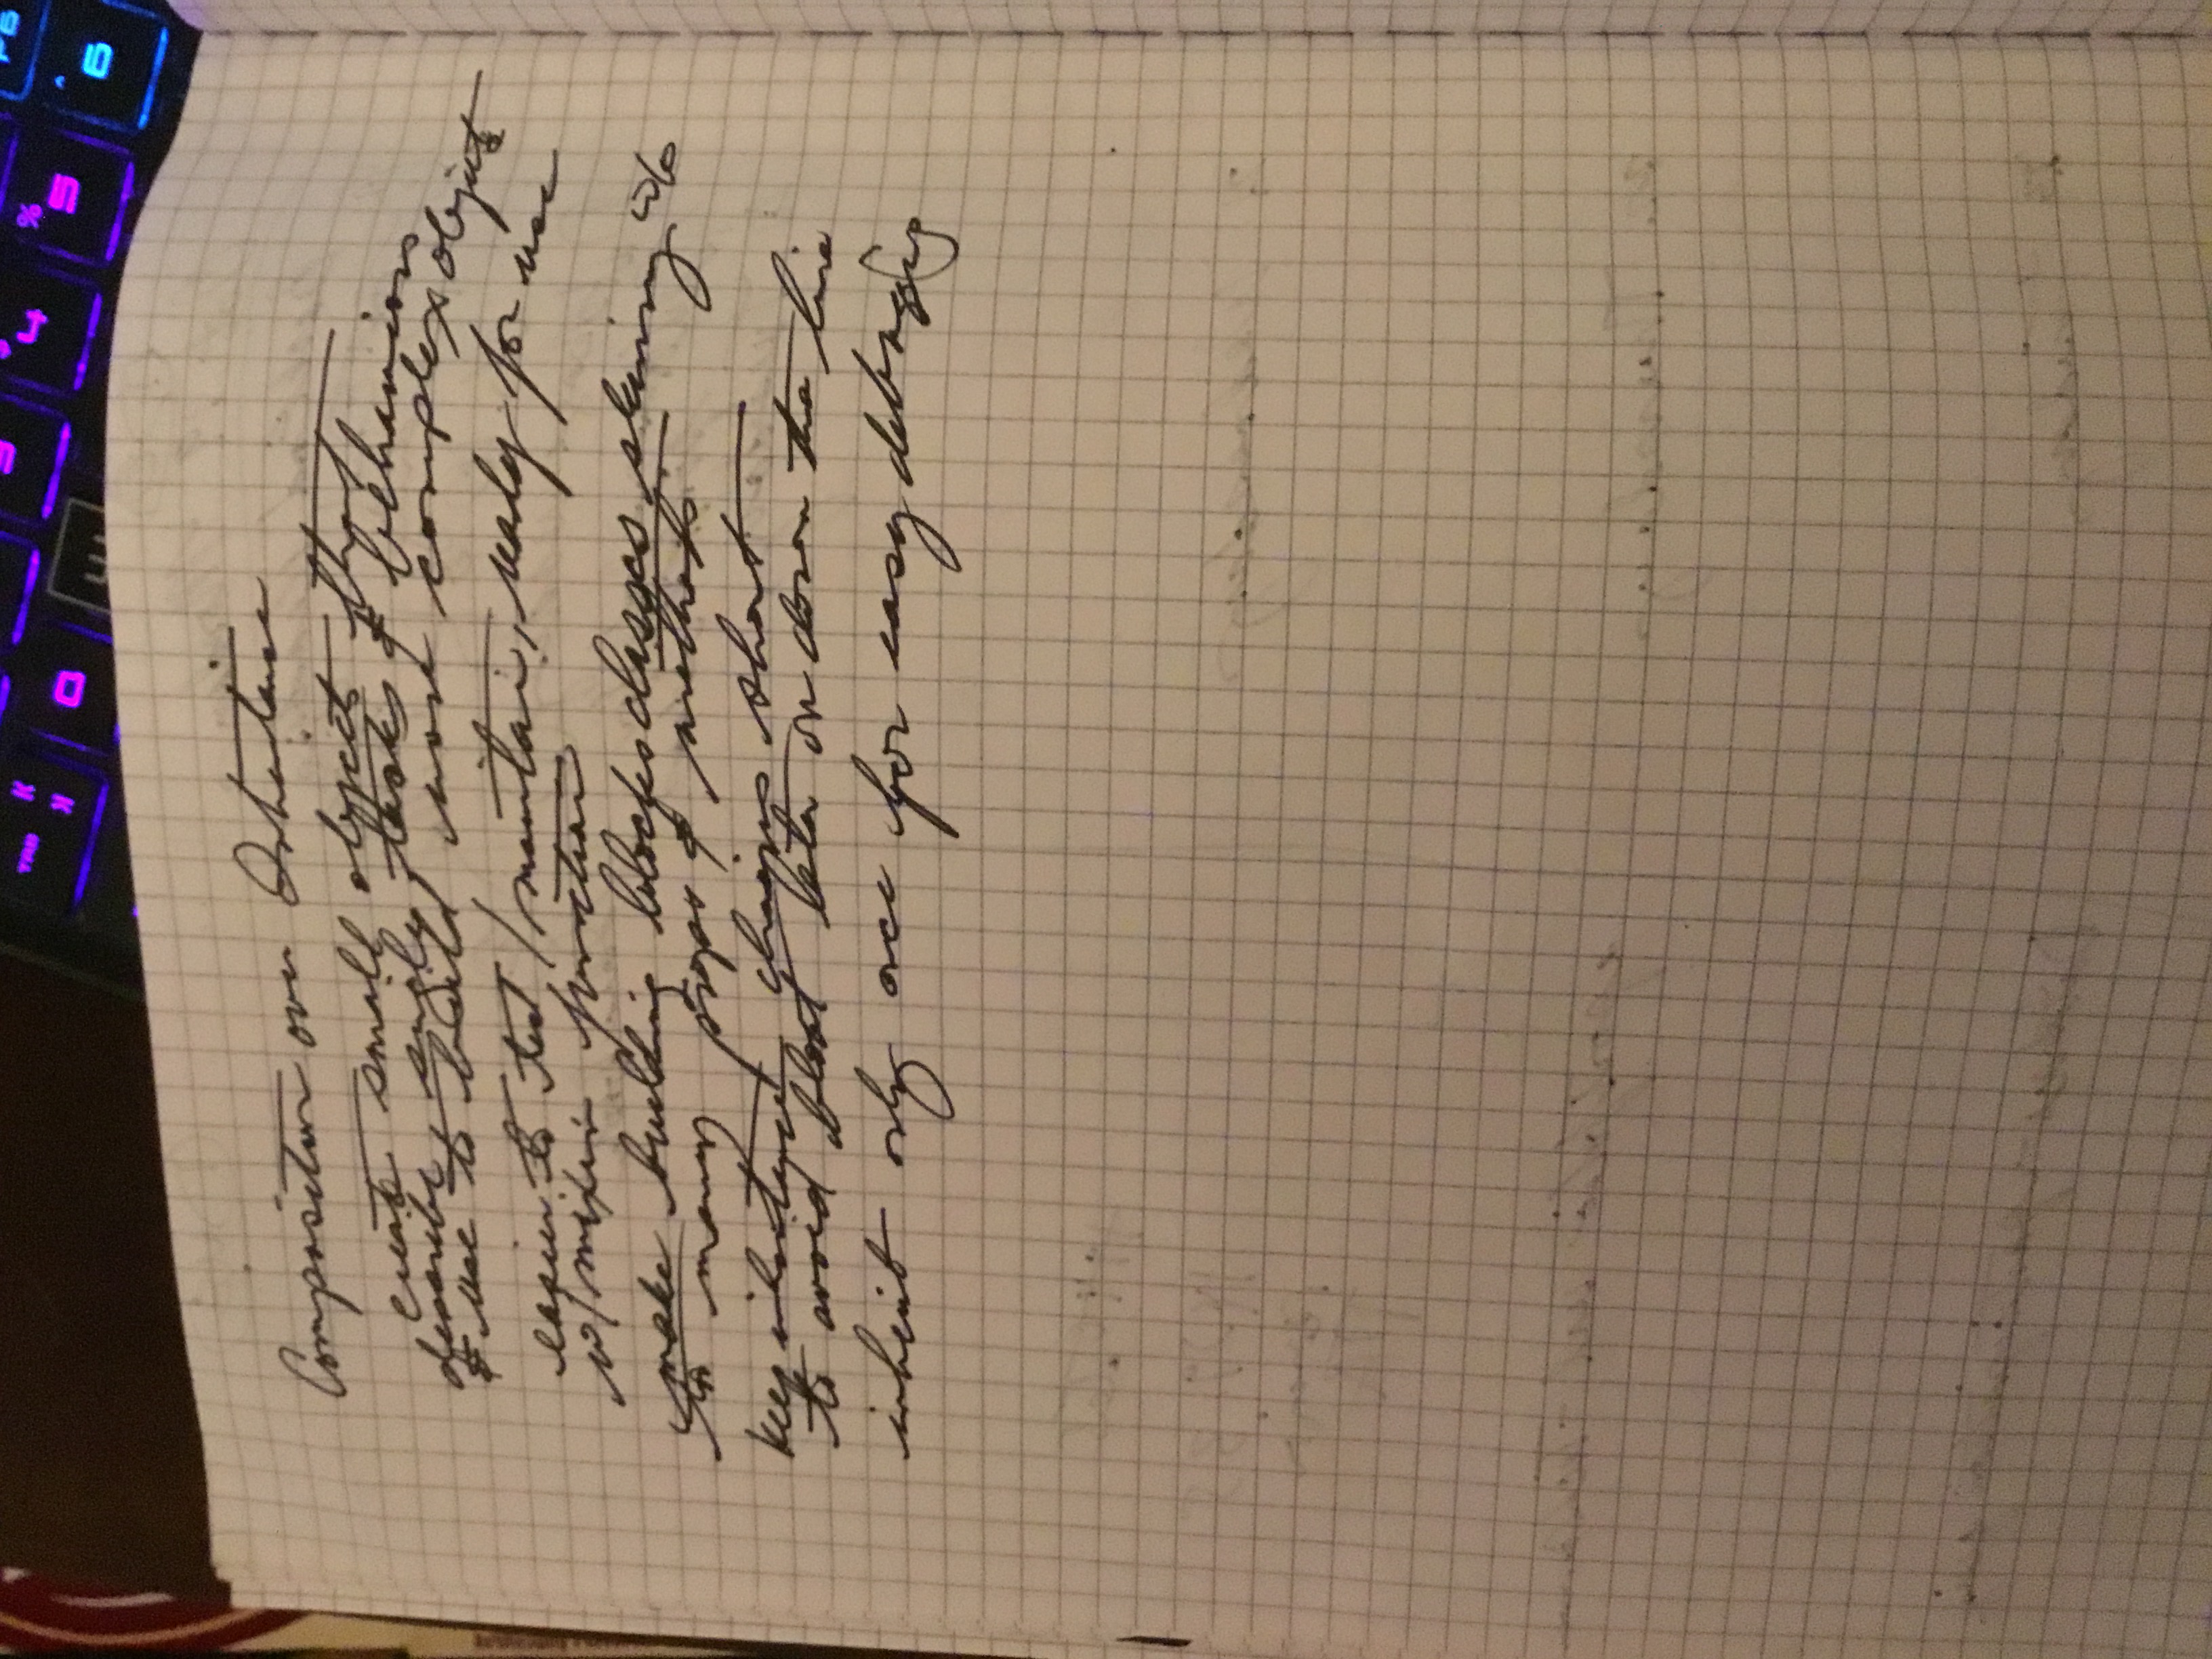 TAB
Q
W
3
4
%
5
^
6
F6
Composition over Inheritance
create small objects that
describe single tasks & behaviors
& use to build more complex objects
easier to test / maintain, ready for use
w/ mixin function
make building blocks classes skinny w/o
to many props & methods
keep inheritance chains short
to avoid bloat later on down the line
inherit only once for easy debugging